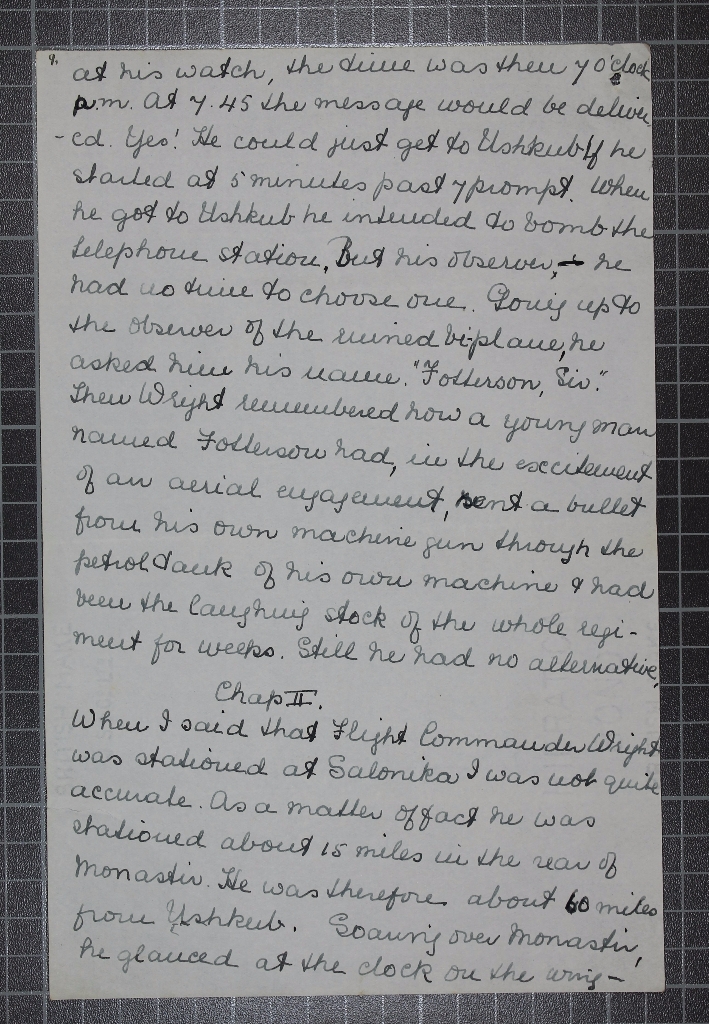 9.
at his watch, the time was then 7 O'clock
p.m. At 7.45 the message would be deliver
-ed. Yes! He could just get to Ushkub if he
started at 5 minutes past 7 prompt. When
he got to Ushkub he intended to bomb the
telephone station. But his observer, — he
had no time to choose one. Going up to
the observer of the ruined biplane, he
asked him his name. "Fotterson, Sir."
Then Wright remembered how a young man
named Fotterson had, in the excitement
of an aerial engagement, sent a bullet
from his own machine gun through the
petrol tank of his own machine & had
been the laughing stock of the whole regi-
ment for weeks. Still he had no alternative.
Chap II.
When I said that Flight Commander Wright
was stationed at Salonika I was not quite
accurate. As a matter of fact he was
stationed about 15 miles in the rear of
Monastir. He was therefore about 60 miles
from Ushkub. Soaring over Monastir,
he glanced at the clock on the wing-